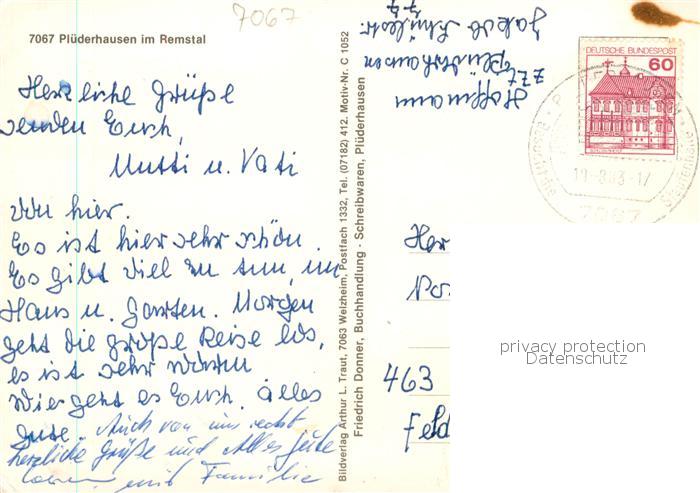 7067
7067 Plüderhausen im Remstal
Herzliche Grüße
senden Euch,
Mutti u. Vati
von hier.
Es ist hier sehr schön.
Es gibt viel zu tun, im
Haus u. Garten. Morgen
geht die große Reise los,
es ist sehr warm
Wie geht es Euch. Alles
Gute. Auch von uns recht
herzliche Grüße und Alles Gute
mit Familie
Bildverlag Arthur L. Traut, 7063 Welzheim, Postfach 1332, Tel. (07182) 412. Motiv-Nr. C 1052
Friedrich Donner, Buchhandlung - Schreibwaren, Plüderhausen
Hoffmann
zzt
Plüderhausen
Jakob Schüle str.
DEUTSCHE BUNDESPOST
60
7067
Her
463
Feld
privacy protection
Datenschutz